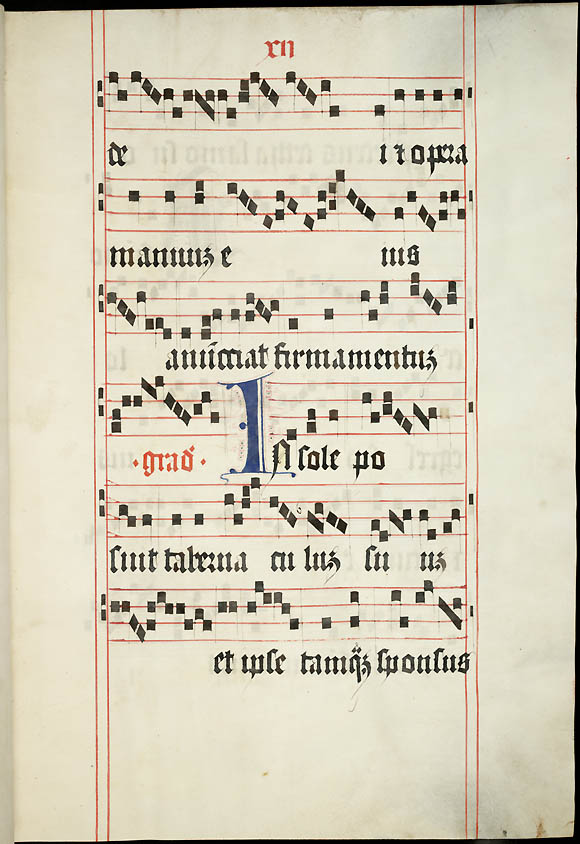 xıı
de i ⁊ opera
manuuʒ e ius
anūcciat firmamentuʒ
·grad̄· In sole po
suit taberna cu luʒ su uʒ
et ipse tamq̄ʒ sponsus